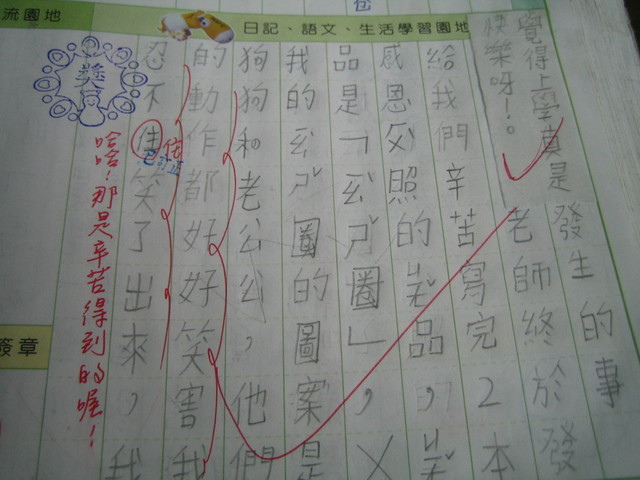 流園地
日記、語文、生活學習園地
覺得上學真是發生的事
快樂呀!。老師終於發
給我們辛苦寫完2本
感恩父照的品,
品是「圈」,
我的圈的圖案是
狗狗和老公公,他們
的動作都好好笑害我
忍不住笑了出來,我
住
哈哈!那是辛苦得到的喔!
簽章